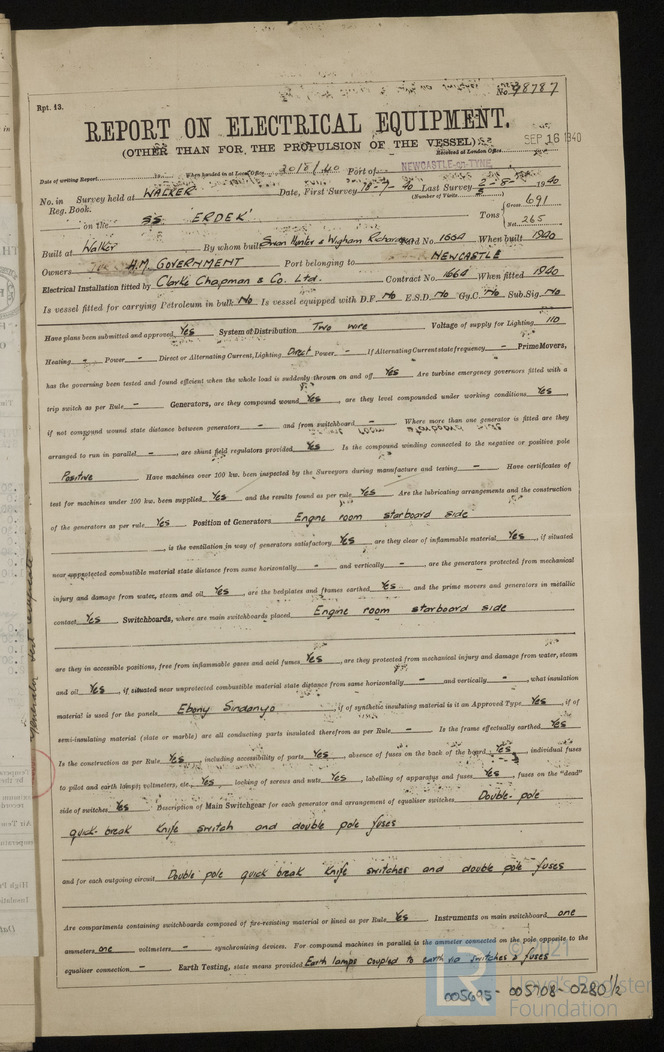 Rpt. 13.
No. 98787
REPORT ON ELECTRICAL EQUIPMENT.
(OTHER THAN FOR THE PROPULSION OF THE VESSEL).
SEP 16 1940
Received at London Office
Date of writing Report 19 When handed in at Local Office 30/8/40 Port of NEWCASTLE-ON-TYNE
No. in Survey held at WALKER Date, First Survey 18-7-40 Last Survey 2-8-1940
Reg. Book. (Number of Visits 5)
on the SS 'ERDEK' Tons { Gross 691
Net 265
Built at Walker By whom built Swan Hunter & Wigham Richardson Yard No. 1664 When built 1940
Owners H.M. GOVERNMENT Port belonging to NEWCASTLE
Electrical Installation fitted by Clarke Chapman & Co. Ltd. Contract No. 1664 When fitted 1940
Is vessel fitted for carrying Petroleum in bulk No Is vessel equipped with D.F. No E.S.D. No Gy.C. No Sub.Sig. No
Have plans been submitted and approved Yes System of Distribution Two wire Voltage of supply for Lighting 110
Heating - Power - Direct or Alternating Current, Lighting Direct Power - If Alternating Current state frequency - Prime Movers,
has the governing been tested and found efficient when the whole load is suddenly thrown on and off Yes Are turbine emergency governors fitted with a
trip switch as per Rule - Generators, are they compound wound Yes, are they level compounded under working conditions Yes,
if not compound wound state distance between generators - and from switchboard - Where more than one generator is fitted are they
arranged to run in parallel -, are shunt field regulators provided Yes Is the compound winding connected to the negative or positive pole
Positive Have machines over 100 kw. been inspected by the Surveyors during manufacture and testing - Have certificates of
test for machines under 100 kw. been supplied Yes and the results found as per rule Yes Are the lubricating arrangements and the construction
of the generators as per rule Yes Position of Generators Engine room starboard side
, is the ventilation in way of generators satisfactory Yes are they clear of inflammable material Yes, if situated
near unprotected combustible material state distance from same horizontally - and vertically -, are the generators protected from mechanical
injury and damage from water, steam and oil Yes, are the bedplates and frames earthed Yes and the prime movers and generators in metallic
contact Yes Switchboards, where are main switchboards placed Engine room starboard side
are they in accessible positions, free from inflammable gases and acid fumes Yes, are they protected from mechanical injury and damage from water, steam
and oil Yes, if situated near unprotected combustible material state distance from same horizontally - and vertically -, what insulation
material is used for the panels Ebony Sindanyo, if of synthetic insulating material is it an Approved Type Yes, if of
semi-insulating material (slate or marble) are all conducting parts insulated therefrom as per Rule - Is the frame effectually earthed Yes
Is the construction as per Rule Yes, including accessibility of parts Yes, absence of fuses on the back of the board Yes, individual fuses
to pilot and earth lamps, voltmeters, etc., Yes, locking of screws and nuts Yes, labelling of apparatus and fuses Yes, fuses on the "dead"
side of switches Yes Description of Main Switchgear for each generator and arrangement of equaliser switches Double-pole
quick-break Knife switch and double pole fuses
and for each outgoing circuit Double pole quick break Knife switches and double pole fuses
Are compartments containing switchboards composed of fire-resisting material or lined as per Rule Yes Instruments on main switchboard one
ammeters one voltmeters - synchronising devices. For compound machines in parallel is the ammeter connected on the pole opposite to the
equaliser connection - Earth Testing, state means provided Earth lamps coupled to earth via switches & fuses
© 2021
LR
Lloyd's Register
Foundation
005695-005708-0280 1/2